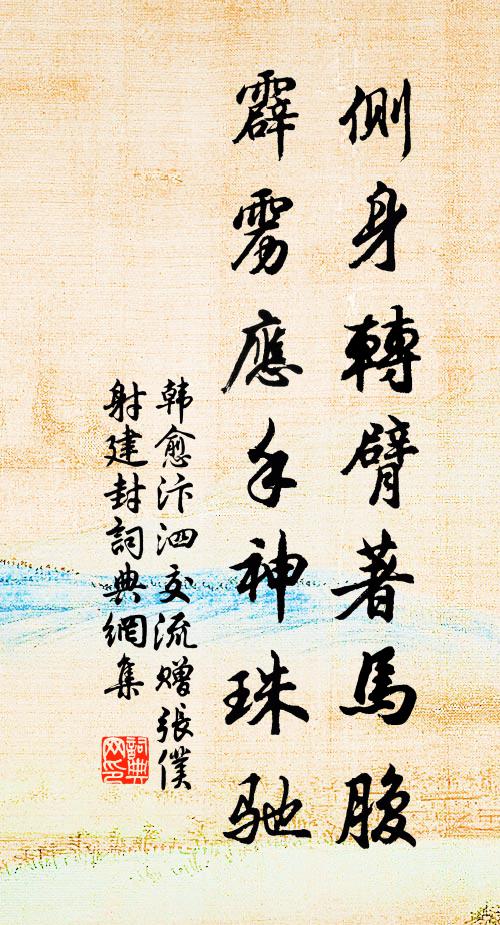 側身轉臂著馬腹
霹雳應手神珠馳
韩愈汴泗交流赠張僕
射建封詞典網集
詞典
网印